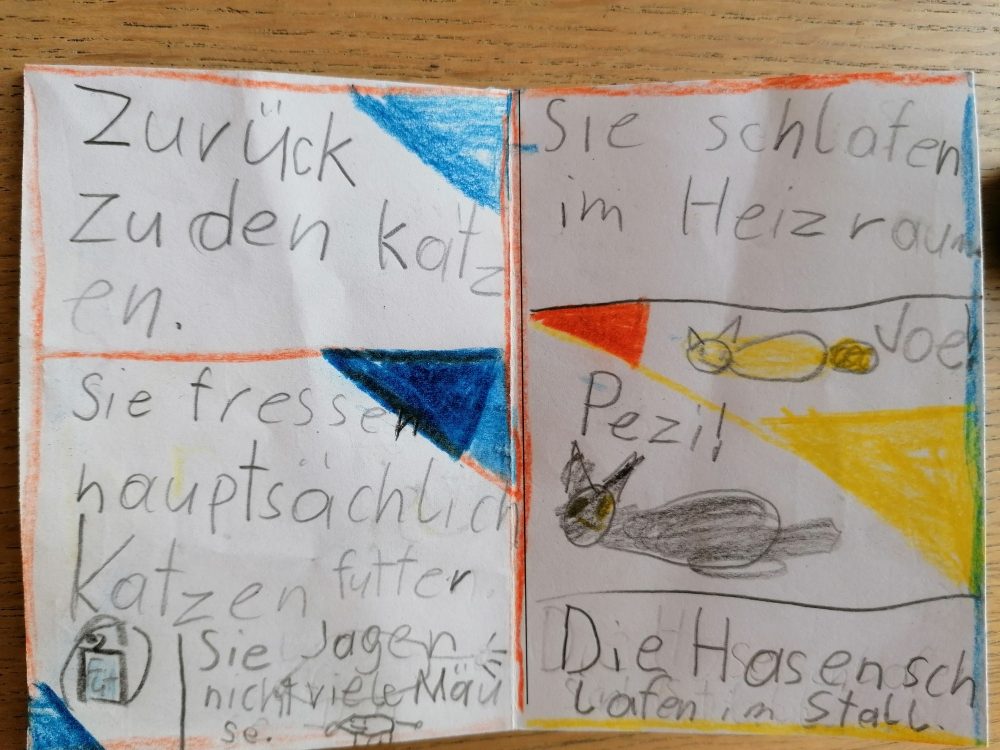 Zurück
Zu den Katz
en.
Sie fressen
hauptsächlich
Katzenfutter.
Fut
Sie Jagen
nicht viele Mäu
se.
Sie schlafen
im Heizraum
Joe
Pezi!
Die Hasen sch
lafen im Stall.